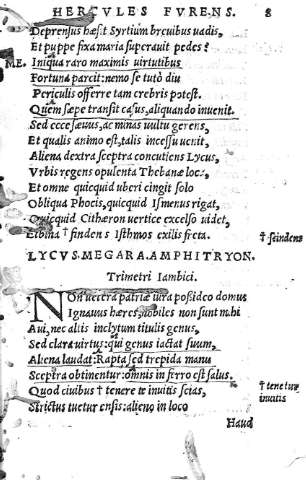 HERCVLES FVRENS. 8
Deprensus hæsit Syrtium breuibus uadis,
Et puppe fixa maria superauit pedes?
ME. Iniqua raro maximis uirtutibus
Fortuna parcit: nemo se tutò diu
Periculis offerre tam crebris potest.
Quem sæpe transit casus, aliquando inuenit.
Sed ecce sæuus, ac minas uultu gerens,
Et qualis animo est, talis incessu uenit,
Aliena dextra sceptra concutiens Lycus,
Vrbis regens opulenta Thebanæ loca,
Et omne quicquid uberi cingit solo
Obliqua Phocis, quicquid Ismenus rigat,
Quicquid Cithæron uertice excelso uidet,
Et bina † findens Isthmos exilis freta. † scindens
LYCVS. MEGARA. AMPHITRYON.
Trimetri Iambici.
NOn uetera patriæ iura possideo domus
Ignauus hæres, nobiles non sunt mihi
Aui, nec altis inclytum titulis genus,
Sed clara uirtus: qui genus iactat suum,
Aliena laudat: Rapta sed trepida manu
Sceptra obtinentur: omnis in ferro est salus.
Quod ciuibus † tenere te inuitis scias, † tenetur
inuitis
Strictus tuetur ensis: alieno in loco
Haud